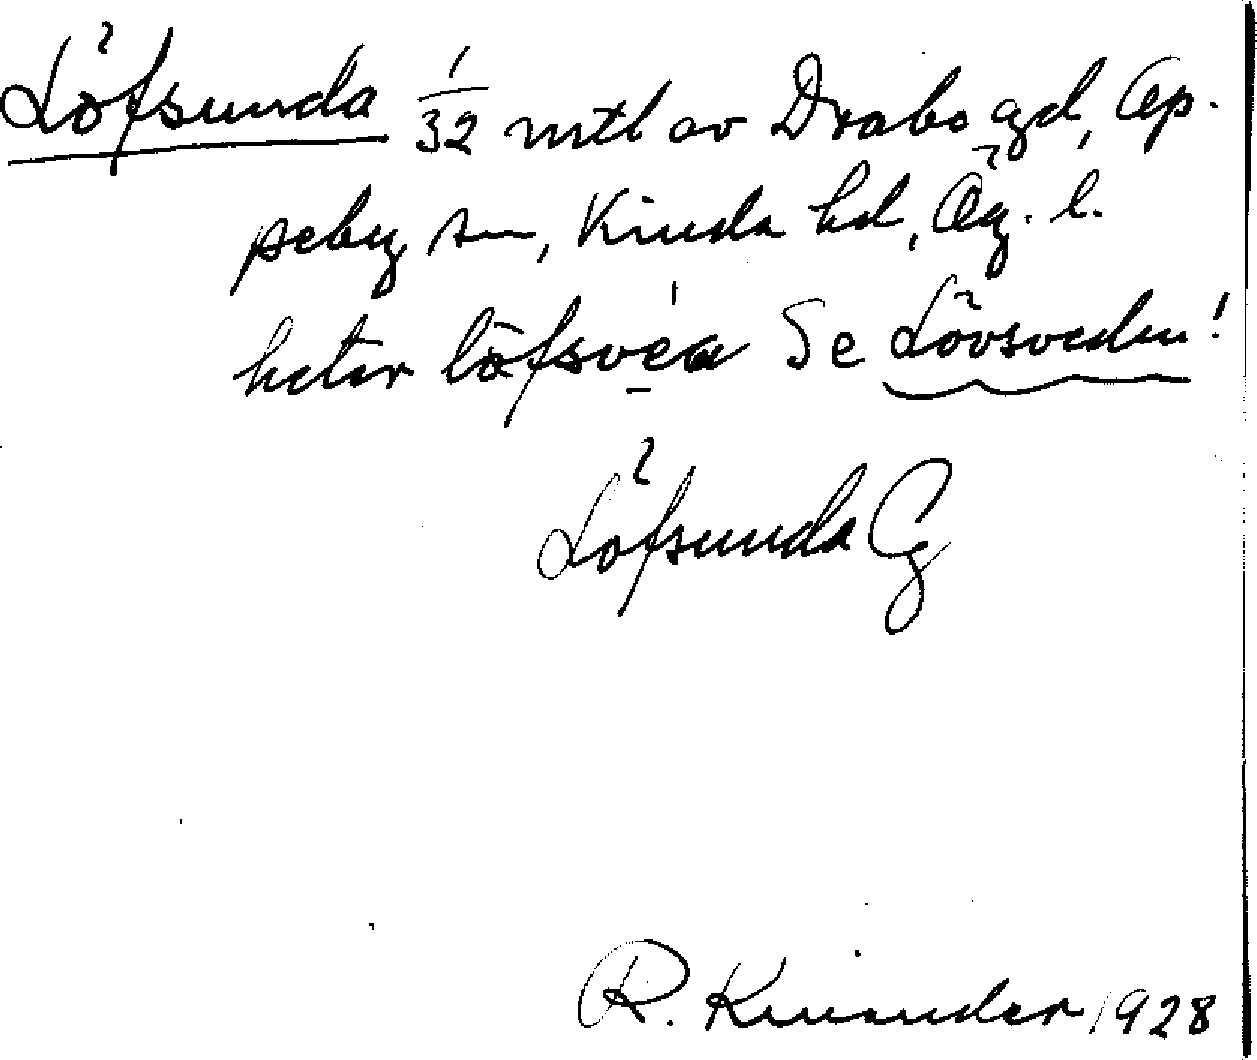 Löfsunda 1/32 mtl av Drabo gd, Op-
peby sn, Kinda hd, Ög. l.
heter löfsvéa Se Lövsveden!
Löfsunda Cg
R. Kinander 1928